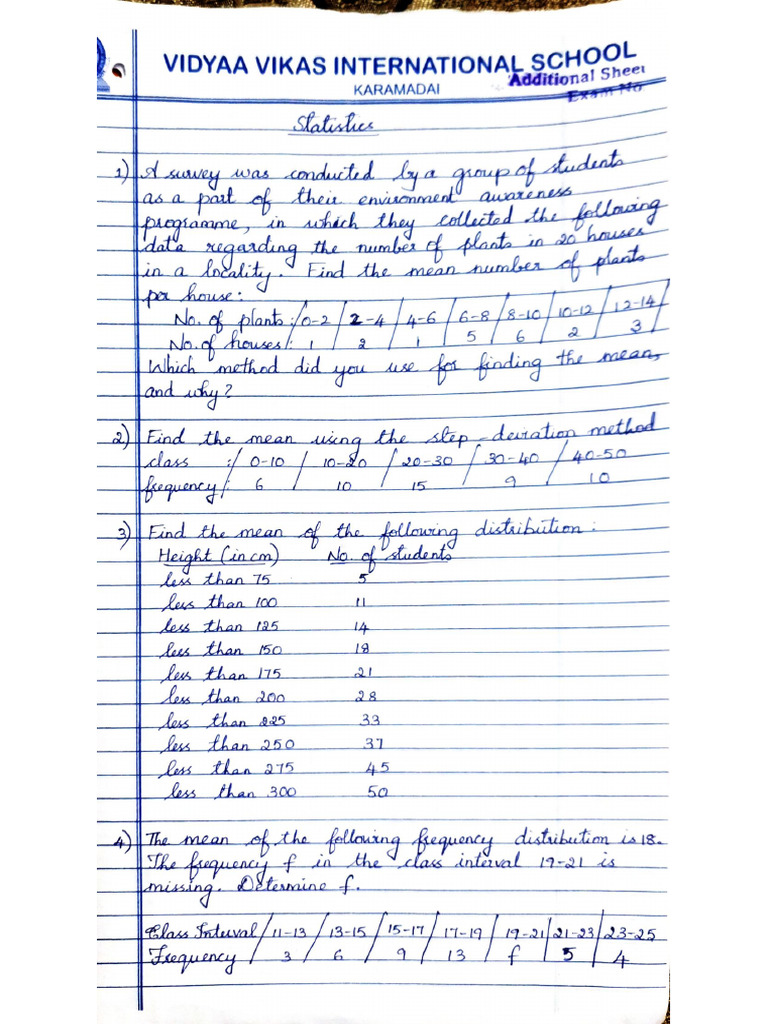 VIDYAA VIKAS INTERNATIONAL SCHOOL
Additional Sheet
KARAMADAI
Exam No
Statistics
1) A survey was conducted by a group of students
as a part of their environment awareness
programme, in which they collected the following
data regarding the number of plants in 20 houses
in a locality. Find the mean number of plants
per house:
No. of plants: 0-2 2-4 4-6 6-8 8-10 10-12 12-14
No. of houses: 1 2 1 5 6 2 3
Which method did you use for finding the mean,
and why?
2) Find the mean using the step-deviation method
class : 0-10 10-20 20-30 30-40 40-50
frequency: 6 10 15 9 10
3) Find the mean of the following distribution:
Height (in cm) No. of students
less than 75 5
less than 100 11
less than 125 14
less than 150 18
less than 175 21
less than 200 28
less than 225 33
less than 250 37
less than 275 45
less than 300 50
4) The mean of the following frequency distribution is 18.
The frequency f in the class interval 19-21 is
missing. Determine f.
Class Interval 11-13 13-15 15-17 17-19 19-21 21-23 23-25
Frequency 3 6 9 13 f 5 4